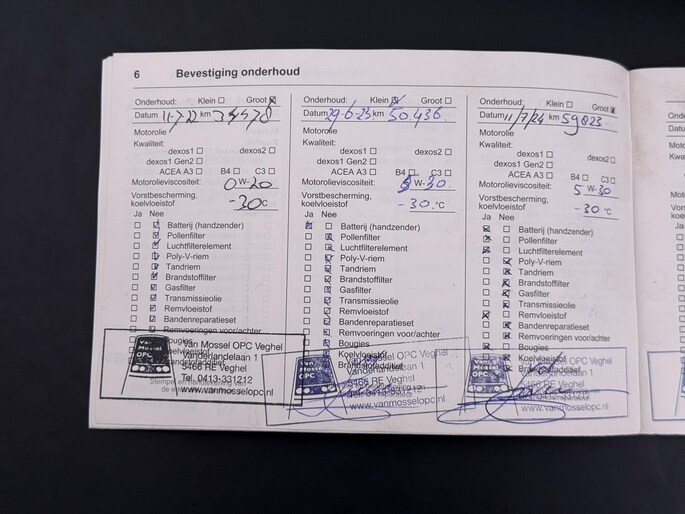 6 Bevestiging onderhoud
Onderhoud: Klein Groot
Datum 11-7-22 km
Motorolie
Kwaliteit:
dexos1 dexos2
dexos1 Gen2
ACEA A3 B4 C3
Motorolieviscositeit: 0 W-20
Vorstbescherming,
koelvloeistof -30°C
Ja Nee
Batterij (handzender)
Pollenfilter
Luchtfilterelement
Poly-V-riem
Tandriem
Brandstoffilter
Gasfilter
Transmissieolie
Remvloeistof
Bandenreparatieset
Remvoeringen voor/achter
Bougies
Koelvloeistof
Van Mossel OPC Veghel
Vanderlandelaan 1
5466 RE Veghel
Tel. 0413-331212
www.vanmosselopc.nl
Van
Mossel
OPC
Onderhoud: Klein Groot
Datum 29-6-23 km 50.436
Motorolie
Kwaliteit:
dexos1 dexos2
dexos1 Gen2
ACEA A3 B4 C3
Motorolieviscositeit: 5 W-30
Vorstbescherming,
koelvloeistof -30.°C
Ja Nee
Batterij (handzender)
Pollenfilter
Luchtfilterelement
Poly-V-riem
Tandriem
Brandstoffilter
Gasfilter
Transmissieolie
Remvloeistof
Bandenreparatieset
Remvoeringen voor/achter
Bougies
Koelvloeistof
Brandstofadditief
Van Mossel OPC Veghel
Vanderlandelaan 1
5466 RE Veghel
www.vanmosselopc.nl
Van
Mossel
OPC
Onderhoud: Klein Groot
Datum 11/7/24 km 59823
Motorolie
Kwaliteit:
dexos1 dexos2
dexos1 Gen2
ACEA A3 B4 C3
Motorolieviscositeit: 5 W-30
Vorstbescherming,
koelvloeistof -30 °C
Ja Nee
Batterij (handzender)
Pollenfilter
Luchtfilterelement
Poly-V-riem
Tandriem
Brandstoffilter
Gasfilter
Transmissieolie
Remvloeistof
Bandenreparatieset
Remvoeringen voor/achter
Bougies
Koelvloeistof
Brandstofadditief
5466 RE Veghel
www.vanmosselopc.nl
Van
Mossel
OPC